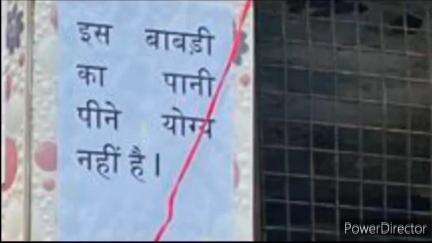 इस बाबड़ी
का पानी
पीने योग्य
नहीं है।
PowerDirector